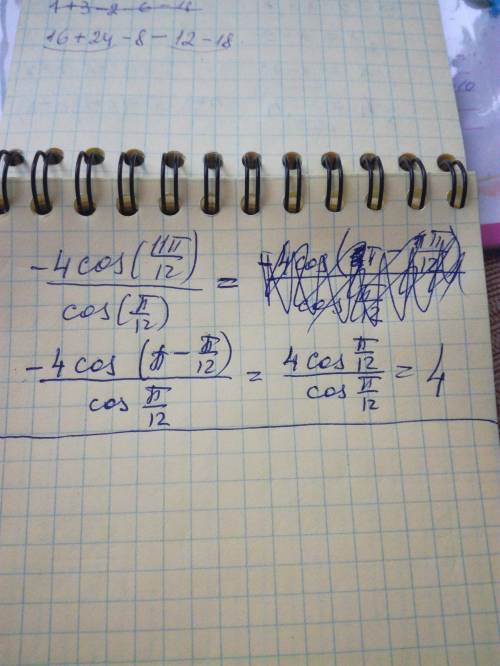 1+3-2-6-18
16+24-8-12-18
-4cos(11π/12)/cos(π/12) =
-4cos(π-π/12)/cos π/12 = 4cos π/12/cos π/12 = 4